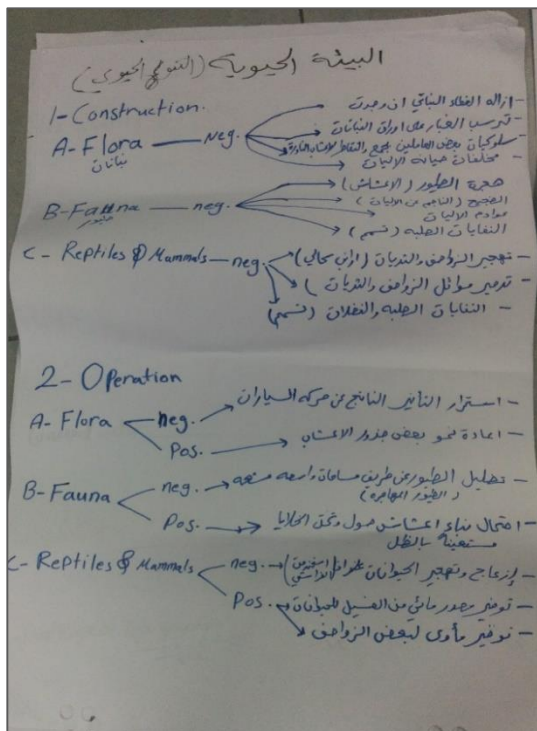 البيئة الحيوية (التنوع الحيوي)
1- Construction.
A- Flora — Neg.
نباتات
- ازاله الغطاء النباتي ان وجدت
- ترسب الغبار على اوراق النباتات
- سلوكيات بعض العاملين بجمع والتقاط الاعشاب النادرة
- مخلفات صيانة الاليات
B- Fauna — neg.
طيور
هجرة الطيور (الاعشاش)
الضجيج (الناجم عن الاليات)
عوادم الاليات
النفايات الصلبه (تسمم)
C- Reptiles & Mammals — neg.
- تهجير الزواحف والثديات (ارانب سحالي)
- تدمير موائل الزواحف والثديات
- النفايات الصلبه والفضلات (تسمم)
2- Operation
A- Flora
neg. - استمرار التأثير الناتج عن حركه السيارات
Pos. - اعادة نمو بعض جذور الاعشاب
B- Fauna
neg. - تضليل الطيور عن طريق مساحات واسعه
(الطيور المهاجرة)
Pos. - احتمال بناء اعشاش حول وتحت الخلايا
مستعينة بالظل
C- Reptiles & Mammals
neg. - إزعاج وتهجير الحيوانات
Pos. - توفير مصدر مائي من الغسيل للحيوانات
- توفير مأوى لبعض الزواحف